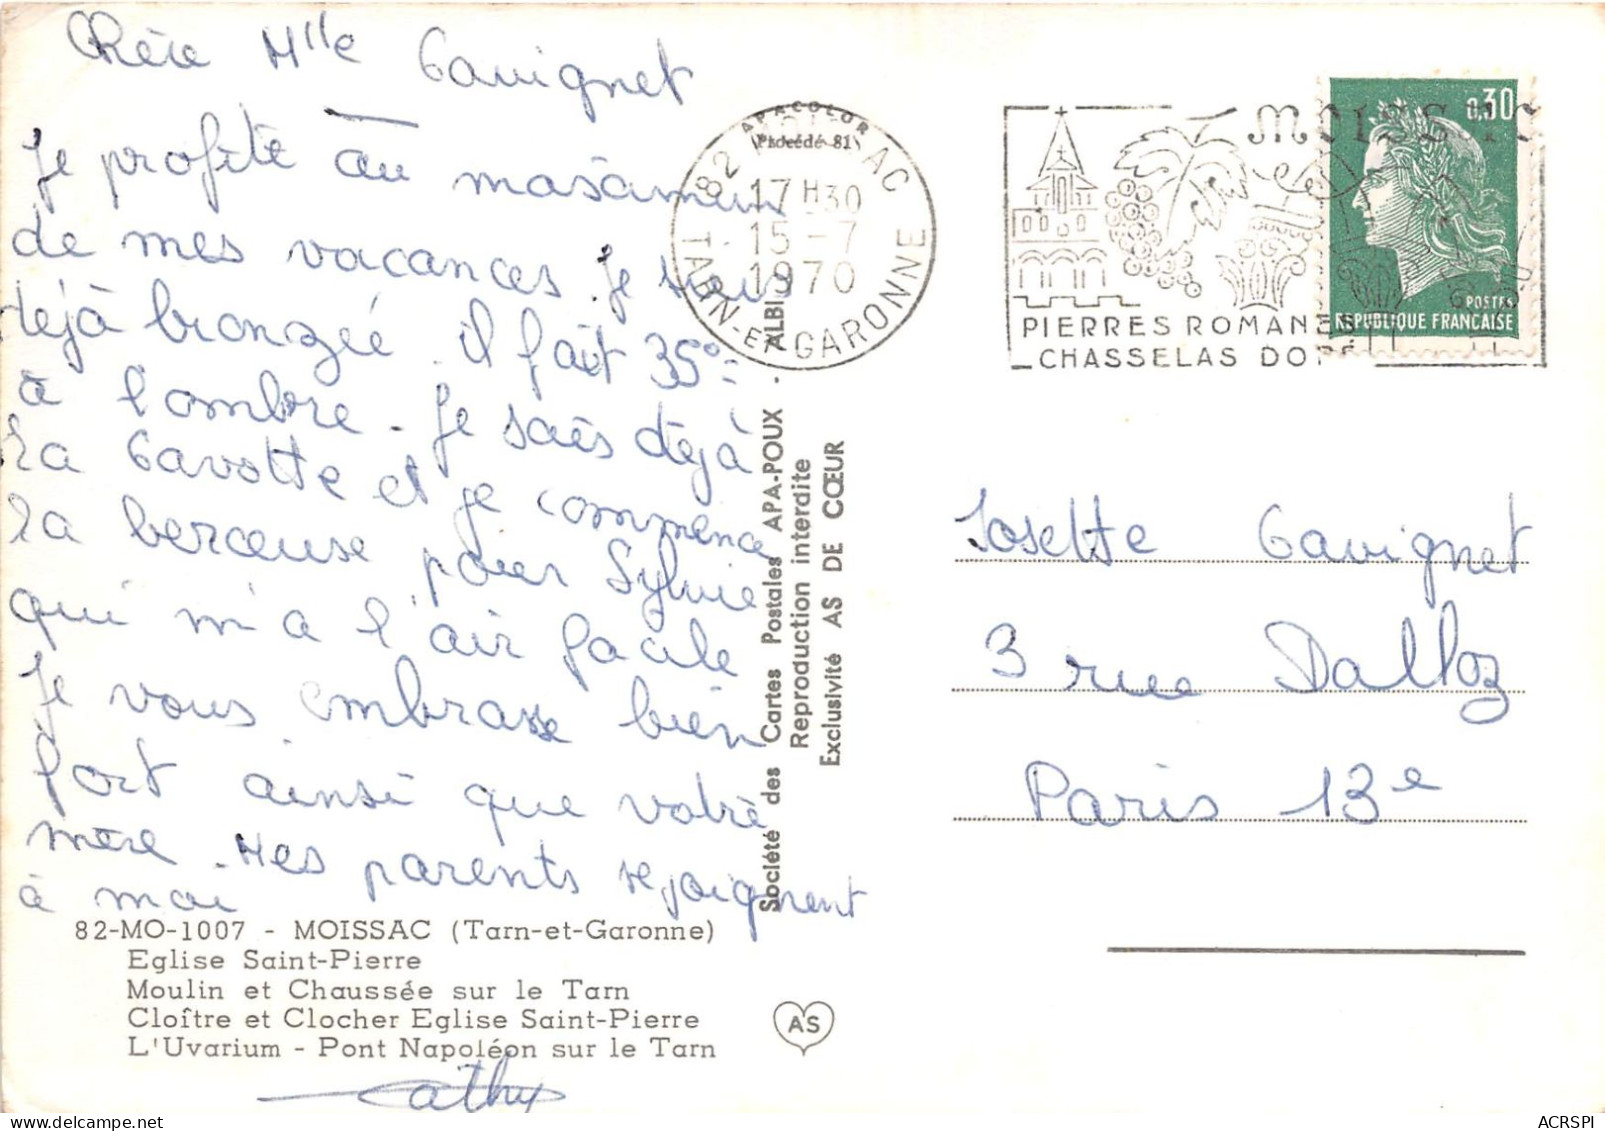 Chère Mlle Gavignet
Je profite au maximum
de mes vacances. Je suis
déjà bronzée. il fait 35°
à l'ombre. Je sais déjà
la Gavotte et je commence
la berceuse pour Sylvie
qui m'a l'air facile
Je vous embrasse bien
fort ainsi que votre
mère. Mes parents se joignent
à moi
82-MO-1007 - MOISSAC (Tarn-et-Garonne)
Eglise Saint-Pierre
Moulin et Chaussée sur le Tarn
Cloître et Clocher Eglise Saint-Pierre
L'Uvarium - Pont Napoléon sur le Tarn
Cathy
APACOLOR
Procédé 81
82 MOISSAC
17 H 30
15 - 7
1970
TARN-ET-GARONNE
Société des Cartes Postales APA-POUX - ALBI
Reproduction interdite
Exclusivité AS DE CŒUR
AS
MOISSAC
PIERRES ROMANES
CHASSELAS DO
0,30
POSTES
REPUBLIQUE FRANCAISE
Josette Gavignet
3 rue Dalloz
Paris 13e
ACRSPI